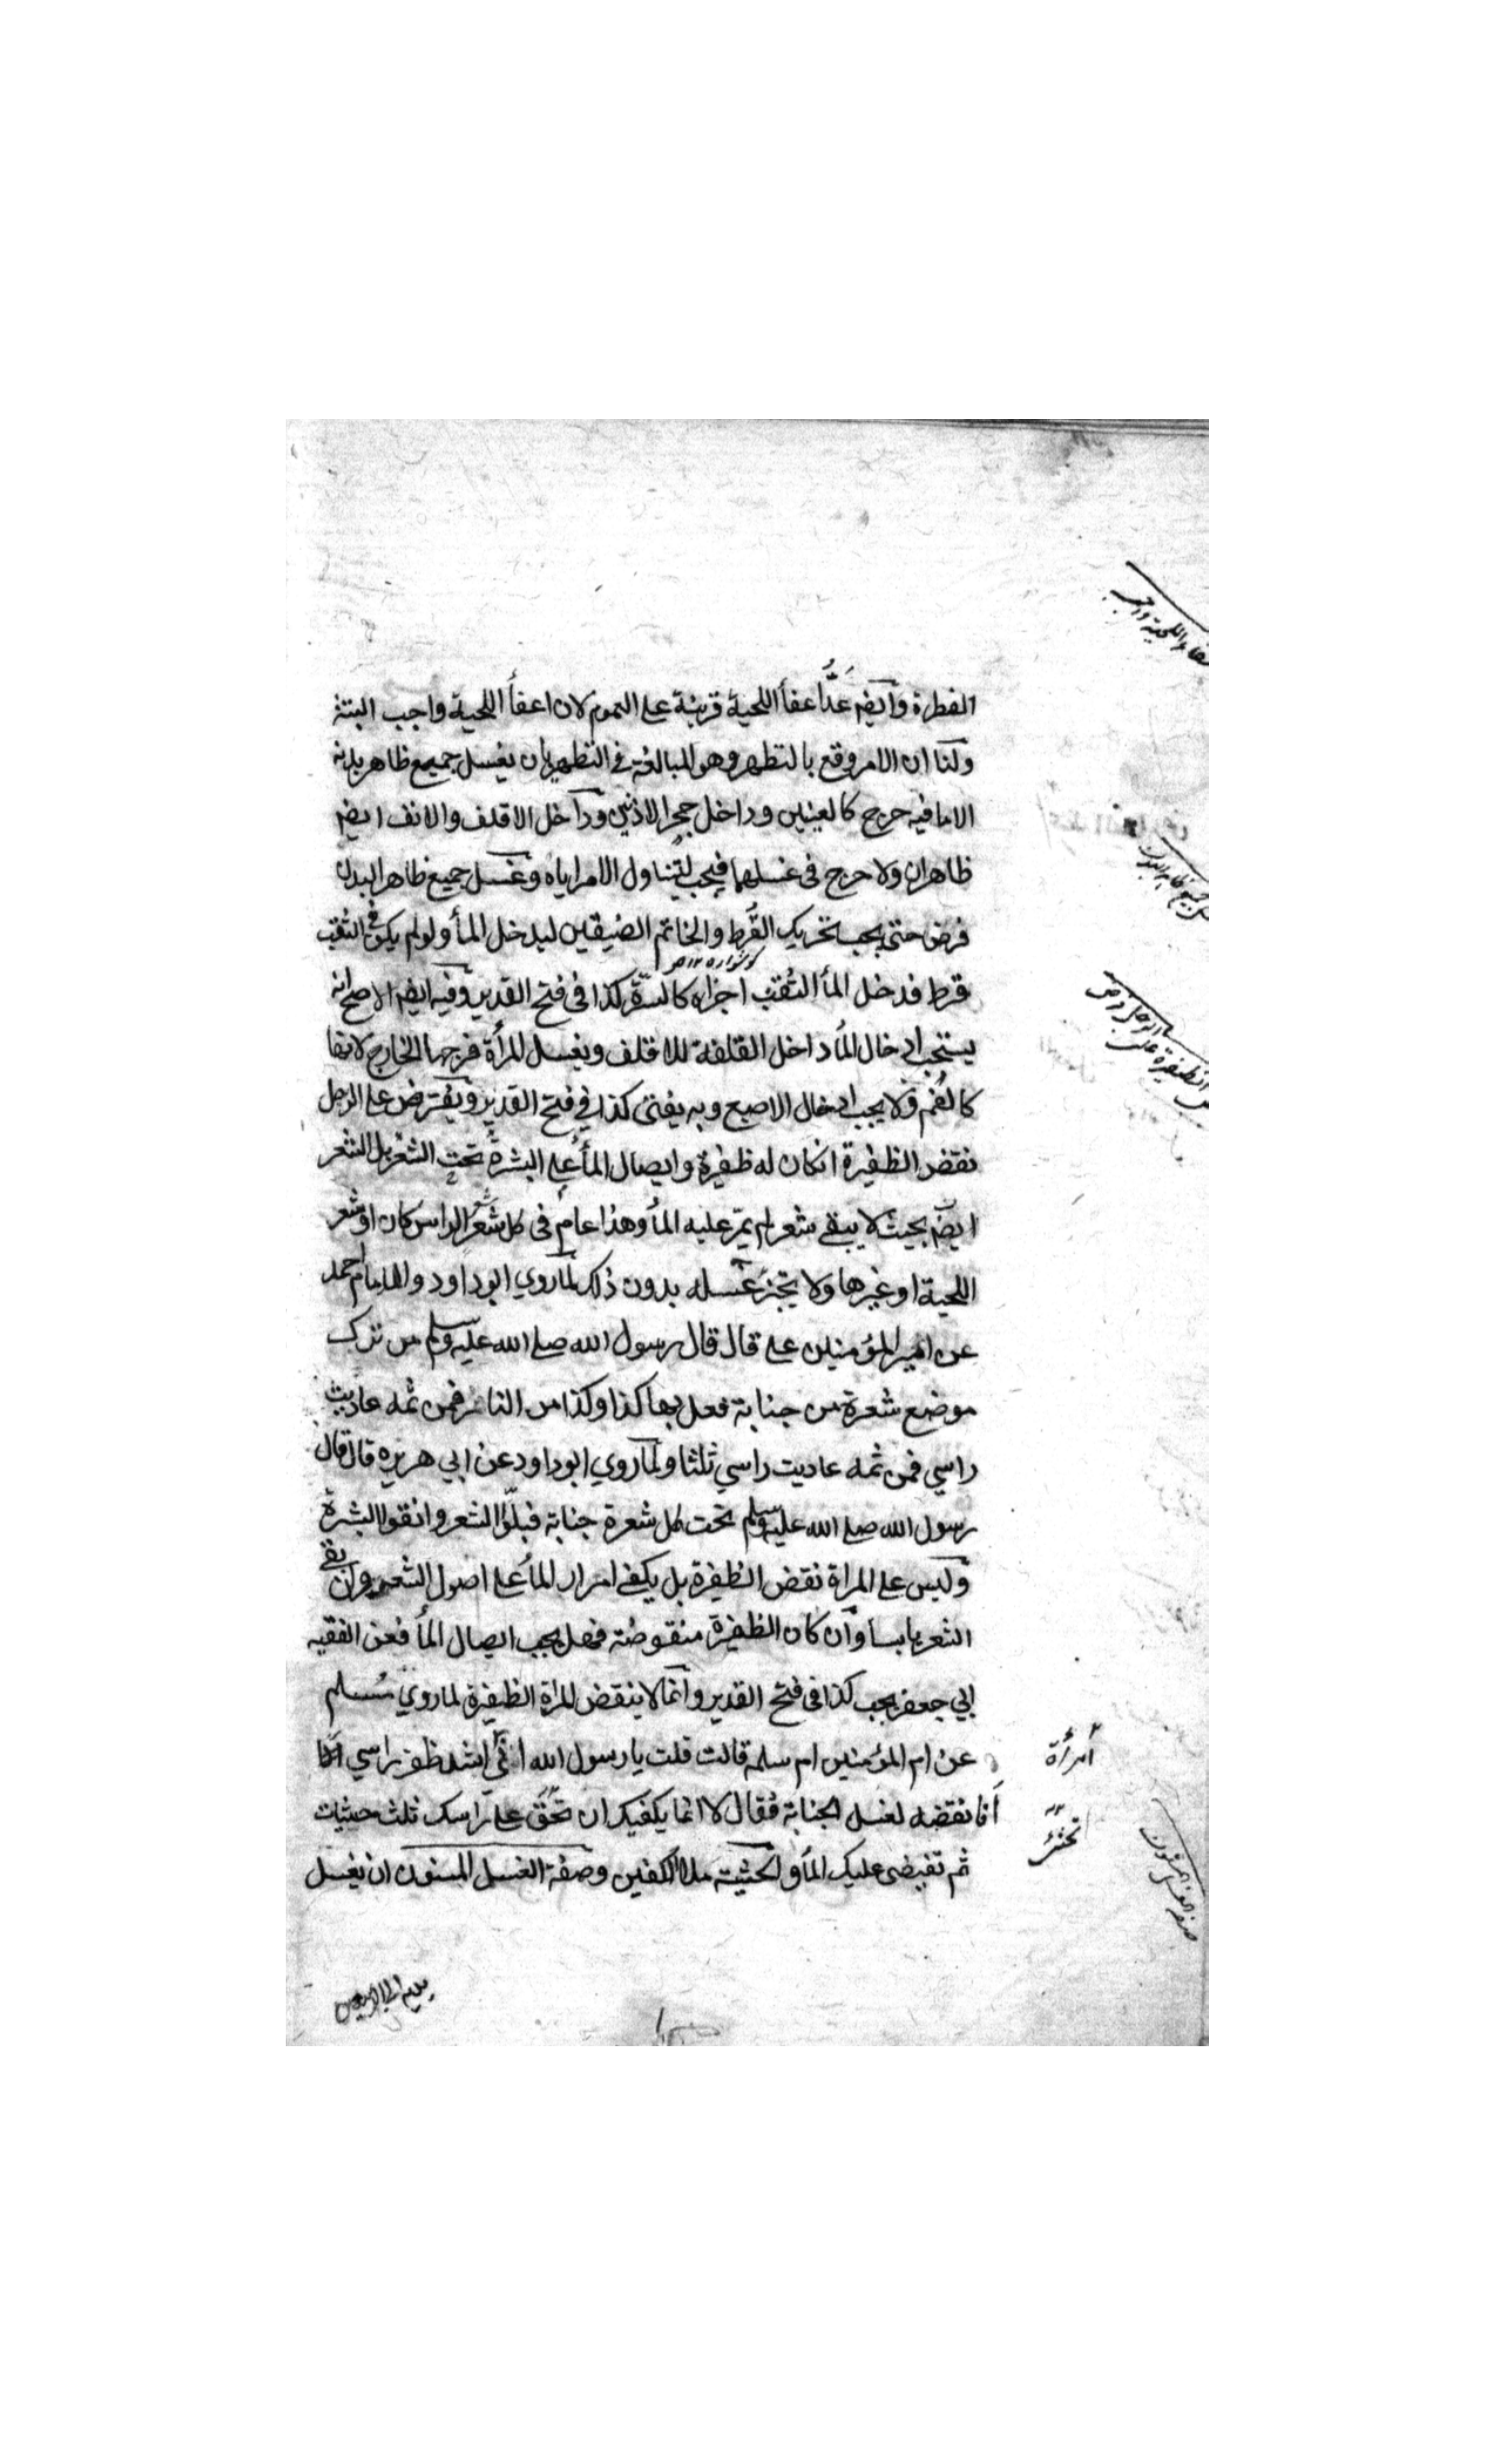 الفطرة وايضم عدّ اعفأ اللحية قرينة على العموم لان اعفأ اللحية واجب البتة
ولنا ان الامر وقع بالتطهر وهو المبالغة في التطهير بان يغسل جميع ظاهر بدنه
الا ما فيه حرج كالعينين وداخل حجر الاذنين وداخل الاقلف والانف ايضم
ظاهران ولا حرج في غسلهما فيجب لتناول الامر اياه وغسل جميع ظاهر البدن
فرض حتى يجب تحريك القُرط والخاتم الضيقين ليدخل المأ ولو لم يكن في الثقب
گوشواره ۱۲ ص
قرط فدخل المأ الثقب اجزاه كالسرّة كذا في فتح القدير وفيه ايضم الاصح انه
يستحب ادخال المأ داخل القلفة للاقلف ويغسل المرأة فرجها الخارج لانها
كالفم ولا يجب ادخال الاصبع وبه يفتى كذا في فتح القدير ويفترض على الرجل
نقض الظفيرة انكان له ظفيرة وايصال المأ على البشرة تحت الشعر بل الشعر
ايضم بحيث لا يبقى شعر لم يمرّ عليه المأ وهذا عام في كل شعر شعر الراس كان او شعر
اللحية او غيرها ولا تجزئ غسله بدون ذلك لما روي ابو داود والامام احمد
عن امير المؤمنين على قال قال رسول الله صلى الله عليه وسلم من ترك
موضع شعرة من جنابة فعل بها كذا وكذا من النار فمن ثمه عاديت
راسي فمن ثمه عاديت راسي ثلثا ولما روي ابو داود عن ابي هريره قال قال
رسول الله صلى الله عليه وسلم تحت كل شعرة جنابة فبلّوا الشعر وانقوا البشرة
وليس على المراة نقض الظفيرة بل يكفي امرار المأ على اصول الشعر وان بقي
الشعر يابسا وان كان الظفيرة منقوضة فهل يجب ايصال المأ فعن الفقيه
ابي جعفر يجب كذا في فتح القدير وانما لا ينقض المراة الظفيرة لما روي مسلم
عن ام المؤمنين ام سلمة قالت قلت يا رسول الله اني اشد ظفر راسي
امرأة
أفانقضه لغسل الجنابة فقال لا انما يكفيك ان تحثي على راسك ثلث حثيات
ثم تفيضى عليك المأ والحثية ملأ الكفين وصفة الغسل المسنون ان يغسل
صفة الغسل المسنون